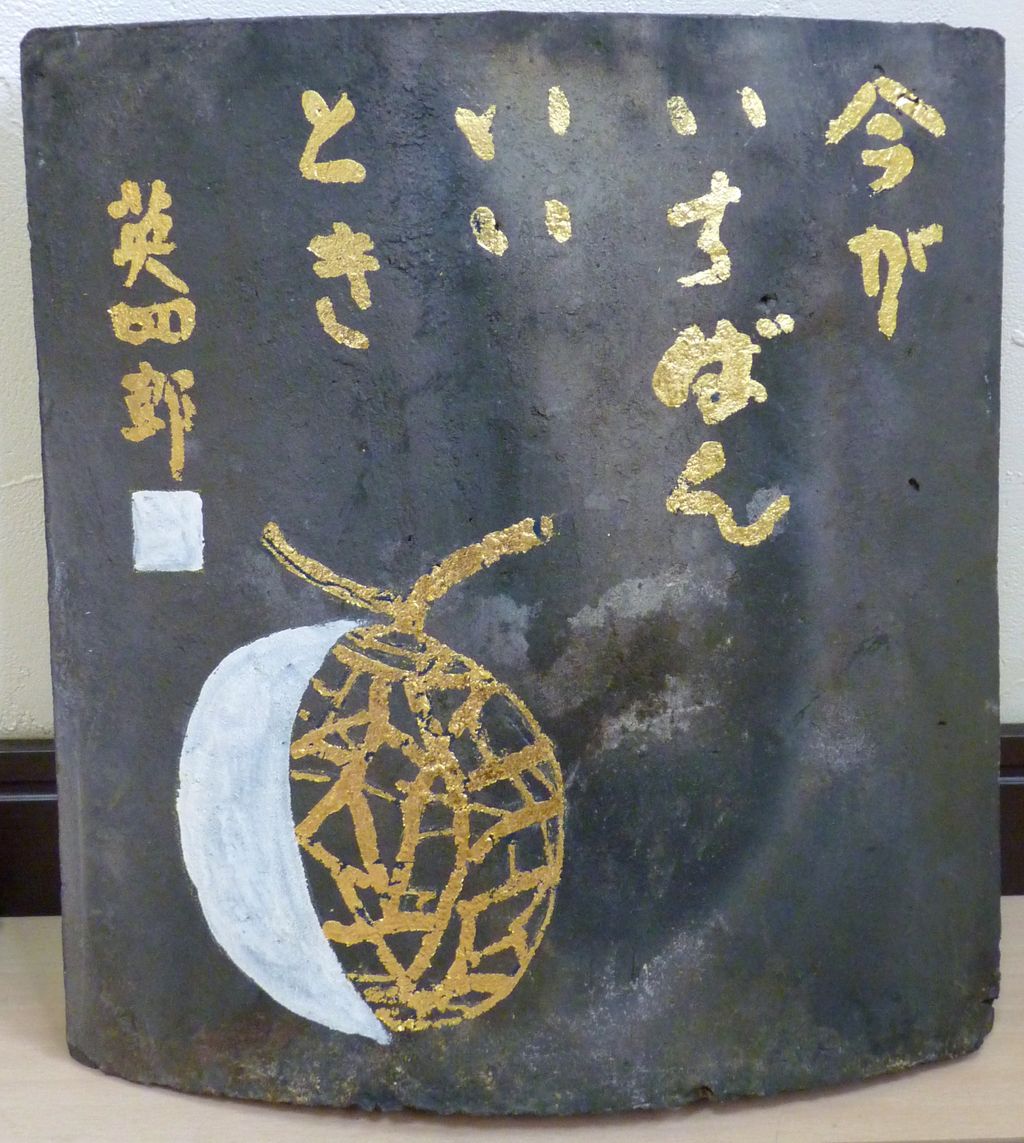 今が
いちばん
いい
とき
英四郎